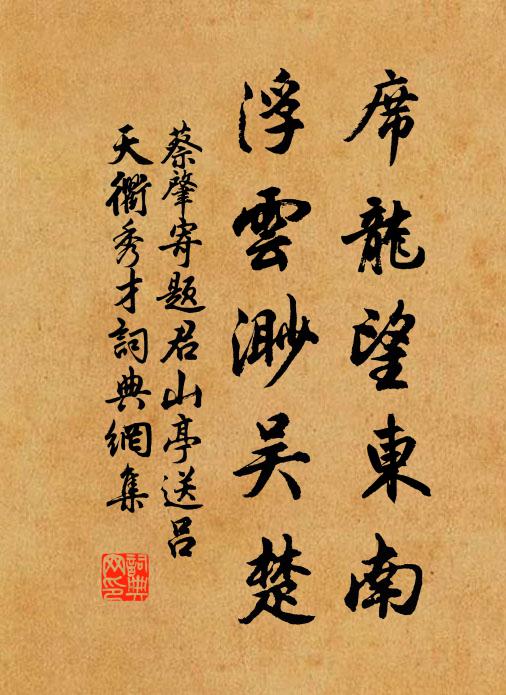 席龍望東南
浮雲渺吴楚
蔡肇寄題君山亭送呂
天衢秀才詞典網集
詞典
网印